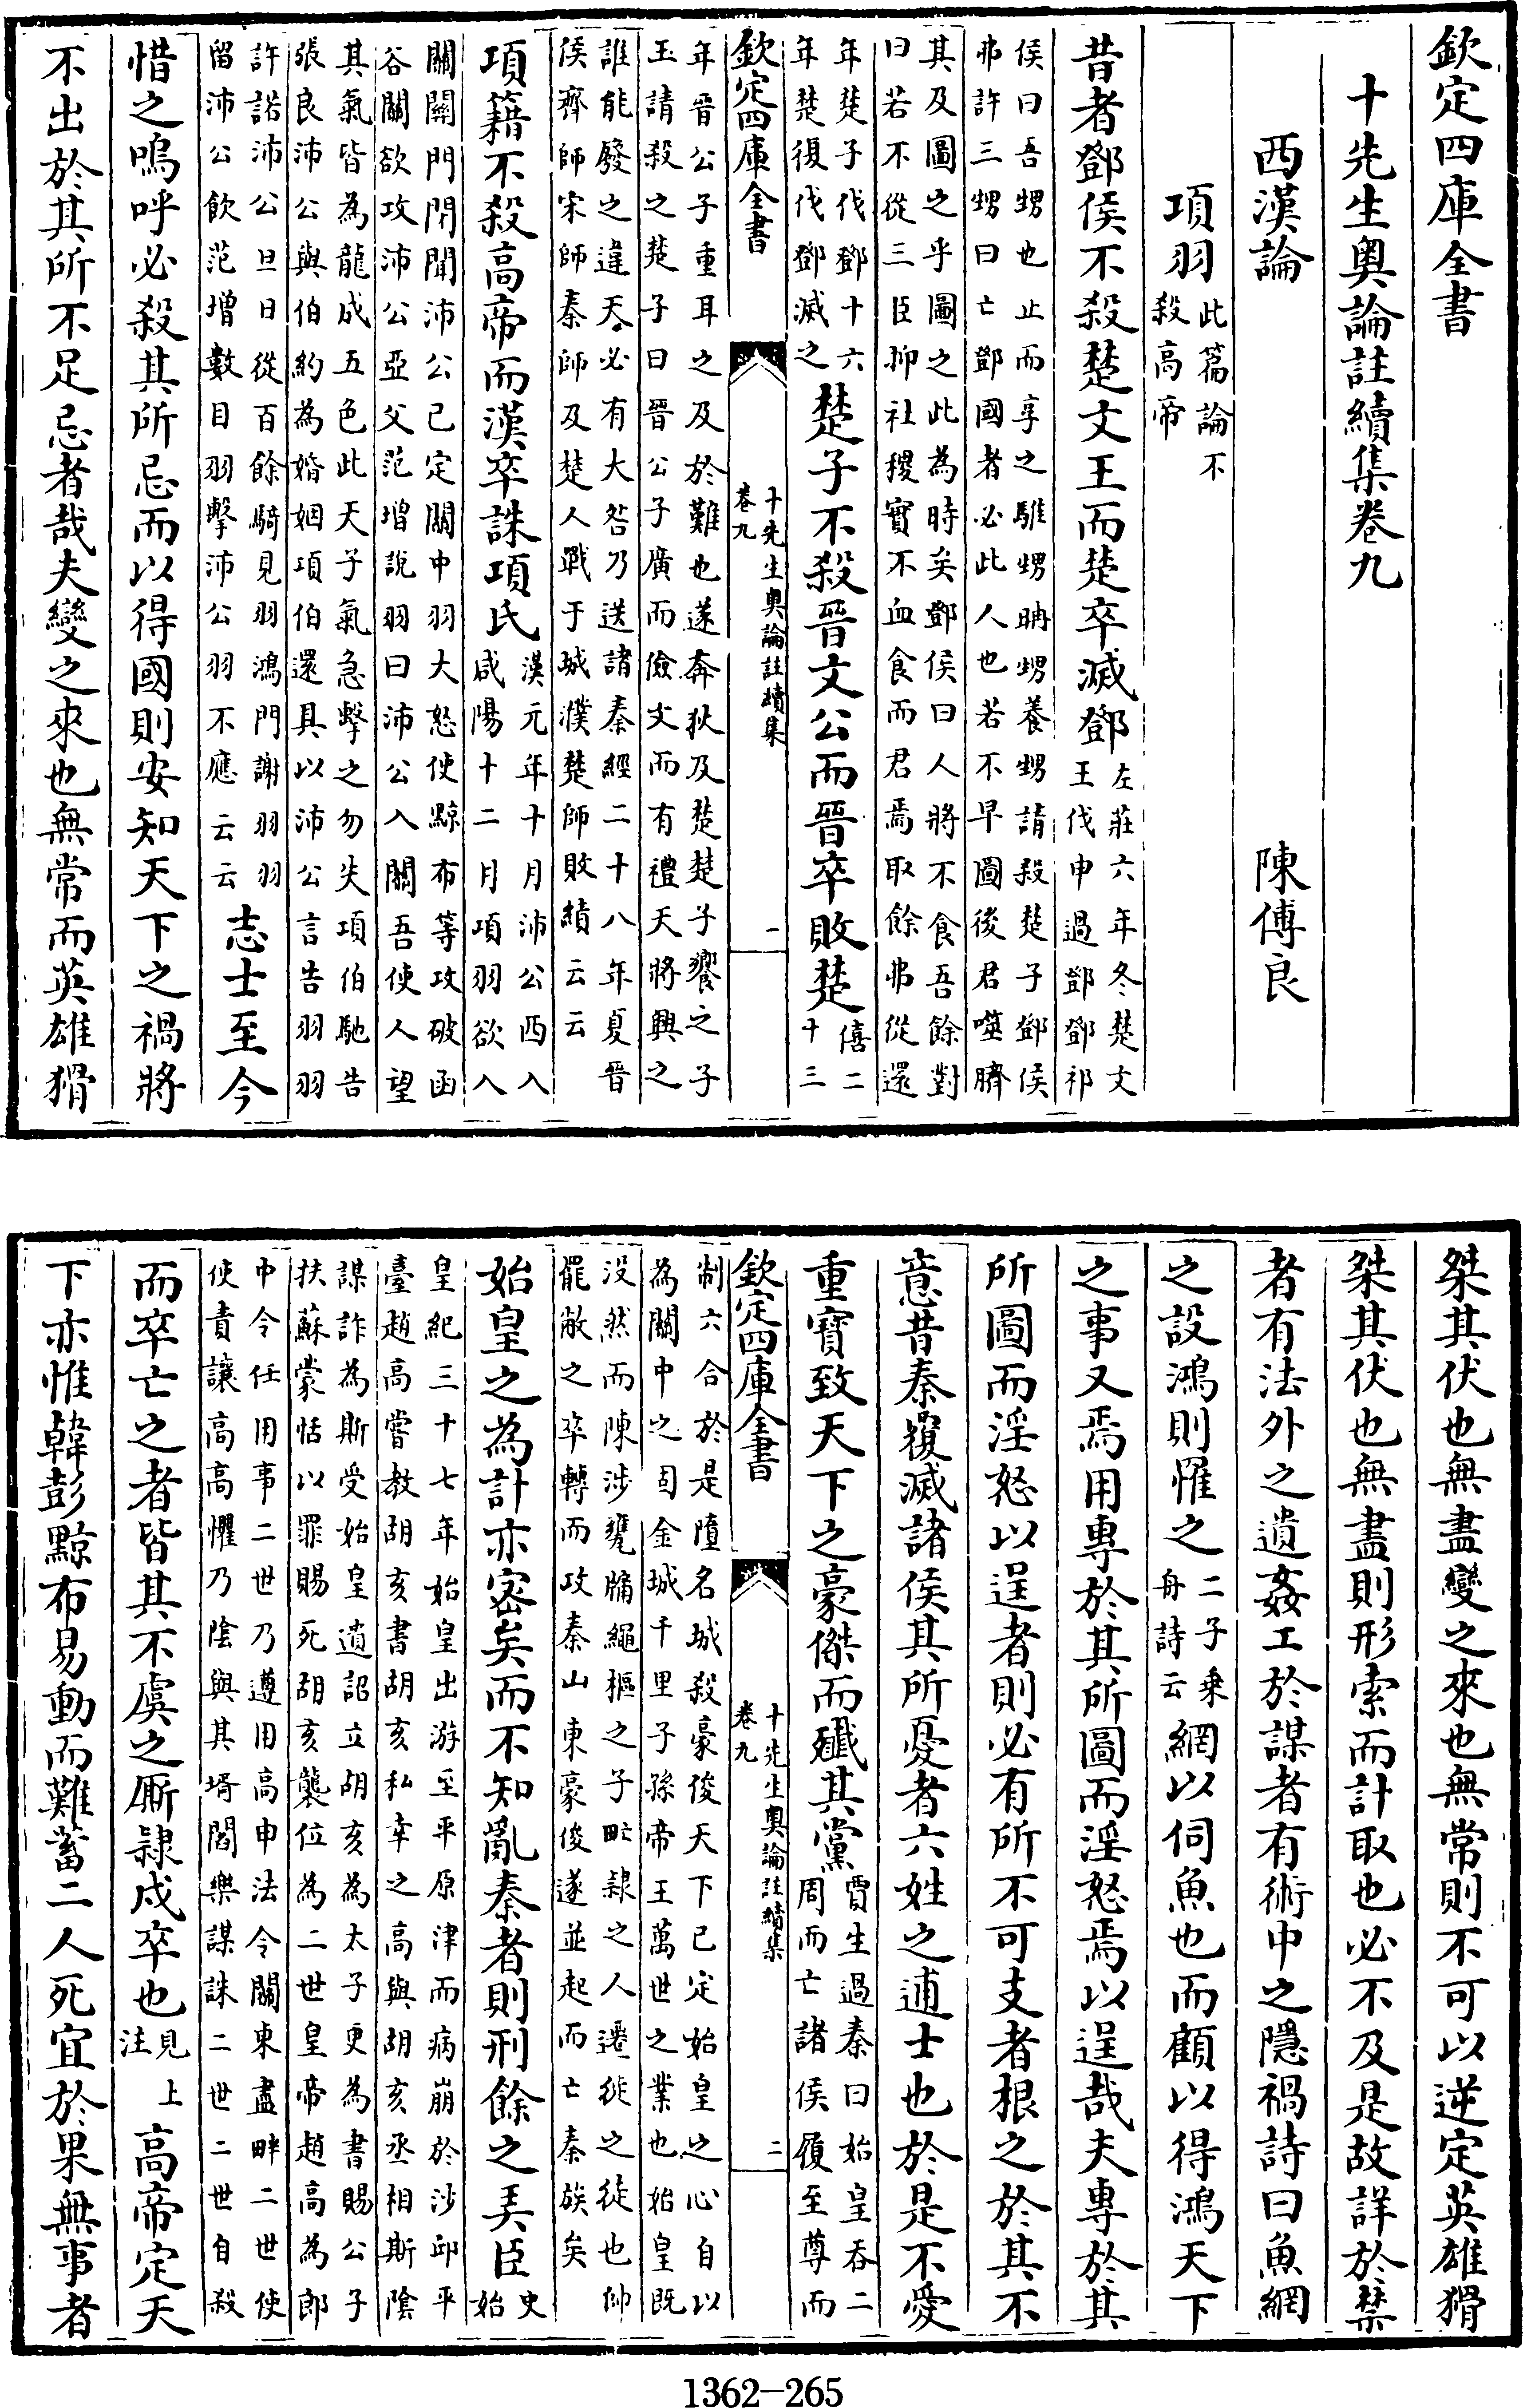 欽定四庫全書
十先生奧論註續集卷九
西漢論　陳傅良
項羽此篇論不殺高帝
昔者鄧侯不殺楚文王而楚卒滅鄧左莊六年冬楚文王伐申過鄧鄧祁
侯曰吾甥也止而享之騅甥聃甥養甥請殺楚子鄧侯弗許三甥曰亡鄧國者必此人也若不早圖後君噬臍
其及圖之乎圖之此為時矣鄧侯曰人將不食吾餘對曰若不從三臣抑社稷實不血食而君焉取餘弗從還
年楚子伐鄧十六年楚復伐鄧滅之楚子不殺晉文公而晉卒敗楚僖二十三
欽定四庫全書　十先生奧論註續集　卷九　一
年晉公子重耳之及於難也遂奔狄及楚楚子饗之子玉請殺之楚子曰晉公子廣而儉文而有禮天將興之
誰能廢之違天必有大咎乃送諸秦經二十八年夏晉侯齊師宋師秦師及楚人戰于城濮楚師敗績云云
項籍不殺高帝而漢卒誅項氏漢元年十月沛公西入咸陽十二月項羽欲入
關關門閉聞沛公已定關中羽大怒使黥布等攻破函谷關欲攻沛公亞父范增說羽曰沛公入關吾使人望
其氣皆為龍成五色此天子氣急擊之勿失項伯馳告張良沛公與伯約為婚姻項伯還具以沛公言告羽羽
許諾沛公旦日從百餘騎見羽鴻門謝羽羽留沛公飲范增數目羽擊沛公羽不應云云志士至今
惜之嗚呼必殺其所忌而以得國則安知天下之禍將
不出於其所不足忌者哉夫變之來也無常而英雄猾
桀其伏也無盡變之來也無常則不可以逆定英雄猾
桀其伏也無盡則形索而計取也必不及是故詳於禁
者有法外之遺姦工於謀者有術中之隱禍詩曰魚網
之設鴻則罹之二子乘舟詩云網以伺魚也而顧以得鴻天下
之事又焉用專於其所圖而淫怒焉以逞哉夫專於其
所圖而淫怒以逞者則必有所不可支者根之於其不
意昔秦復滅諸侯其所憂者六姓之逋士也於是不愛
重寶致天下之豪傑而殲其黨賈生過秦曰始皇吞二周而亡諸侯履至尊而
欽定四庫全書　十先生奧論註續集　卷九　二
制六合於是墮名城殺豪俊天下已定始皇之心自以為關中之固金城千里子孫帝王萬世之業也始皇既
沒然而陳涉甕牖繩樞之子甿隸之人遷徙之徒也帥罷敝之卒轉而攻秦山東豪俊遂並起而亡秦族矣
始皇之為計亦密矣而不知亂秦者則刑餘之弄臣史始
皇紀三十七年始皇出游至平原津而病崩於沙邱平臺趙高嘗教胡亥書胡亥私幸之高與胡亥丞相斯陰
謀詐為斯受始皇遺詔立胡亥為太子更為書賜公子扶蘇蒙恬以罪賜死胡亥襲位為二世皇帝趙高為郎
中令任用事二世乃遵用高申法令關東盡畔二世使使責讓高高懼乃陰與其壻閻樂謀誅二世二世自殺
而卒亡之者皆其不虞之厮隸戍卒也見上注高帝定天
下亦惟韓彭黥布易動而難蓄二人死宜於果無事者
1362-265